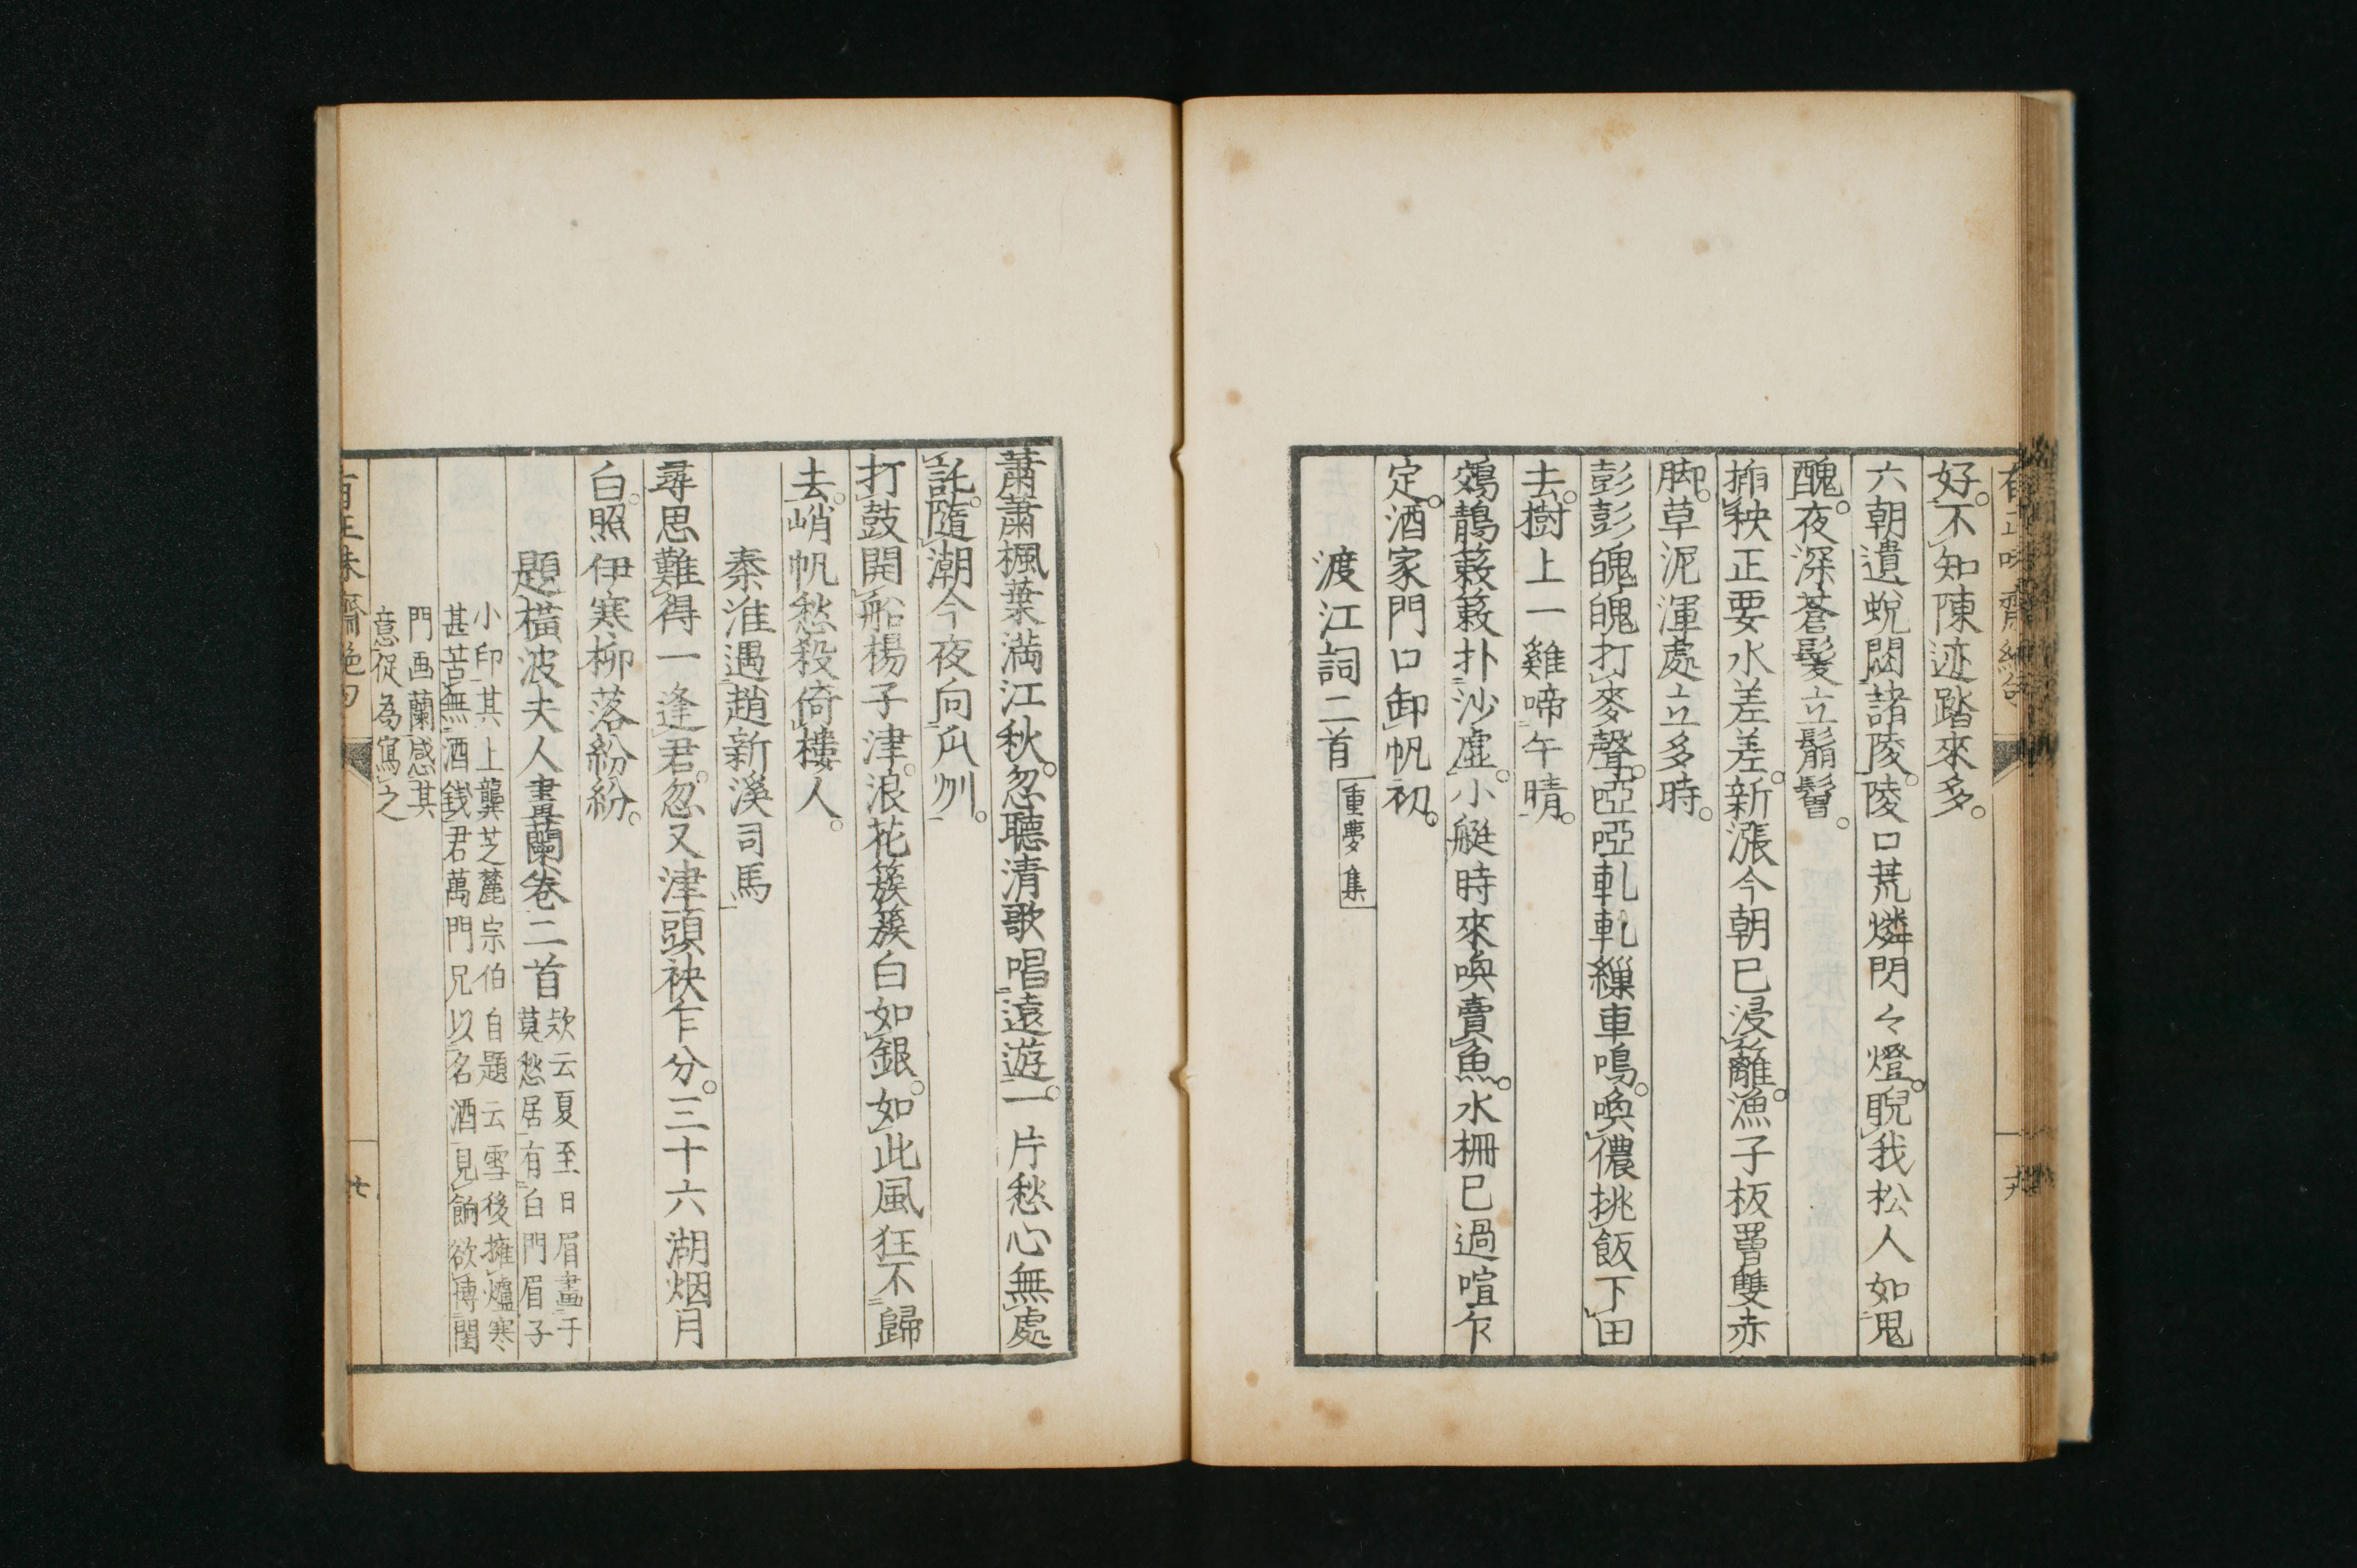 好。不知陳迹踏來多。
六朝遺蛻閟諸陵。陵口荒燐閃々燈。睨我松人如鬼
醜。夜深蒼髮立鬅鬙。
插秧正要水差差。新漲今朝已浸籬。漁子板罾雙赤
脚。草泥渾處立多時。
彭彭魄魄打麥聲。啞啞軋軋繅車鳴。喚儂挑飯下田
去。樹上一雞啼午晴。
鵁鶄蔌蔌扑沙虛。小艇時來喚賣魚。水柵已過喧乍
定。酒家門口卸帆初。
渡江詞二首 重夢集
蕭蕭楓葉滿江秋。忽聽清歌唱遠遊。一片愁心無處
託。隨潮今夜向瓜洲。
打鼓開船楊子津。浪花簇簇白如銀。如此風狂不歸
去。峭帆愁殺倚樓人。
秦淮遇趙新溪司馬
尋思難得一逢君。忽又津頭袂乍分。三十六湖烟月
白。照伊寒柳落紛紛。
題橫波夫人畫蘭卷二首 欵云夏至日眉畫于
莫愁居有白門眉子
小印其上龔芝麓宗伯自題云雪後擁爐寒
甚苦無酒錢君萬門兄以名酒見餉欲傅閨
門画蘭感其
意促為寫之
廿